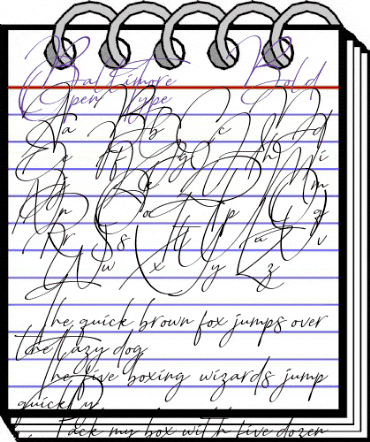 Baltimore Bold
Open Type
Aa Bb Cc Dd
Ee Ff Gg Hh Ii
Jj Kk Ll Mm
Nn Oo Pp Qq
Rr Ss Tt Uu Vv
Ww Xx Yy Zz
The quick brown fox jumps over
the lazy dog
The five boxing wizards jump
quickly
Pack my box with five dozen